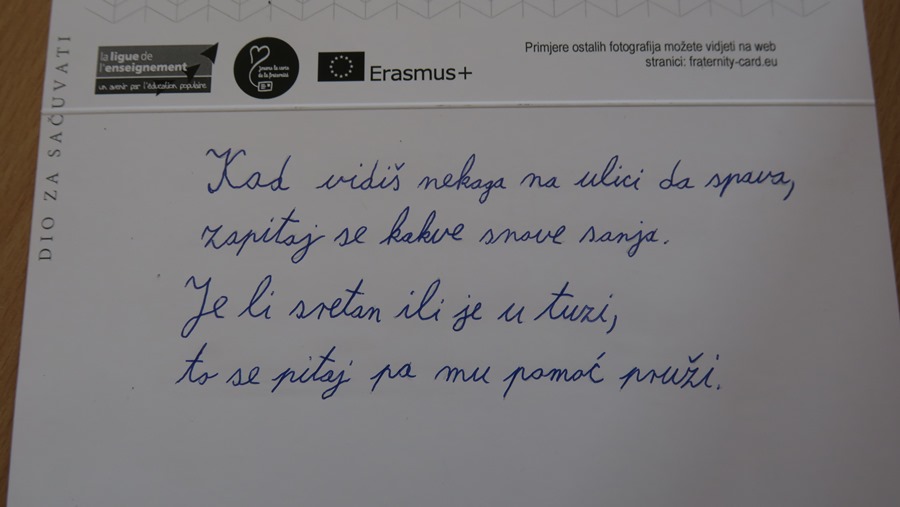 la ligue de
l'enseignement
un avenir par l'éducation populaire
Jouons la carte
de la fraternité
Erasmus+
Primjere ostalih fotografija možete vidjeti na web
stranici: fraternity-card.eu
DIO ZA SAČUVATI
Kad vidiš nekoga na ulici da spava,
zapitaj se kakve snove sanja.
Je li sretan ili je u tuzi,
to se pitaj pa mu pomoć pruži.